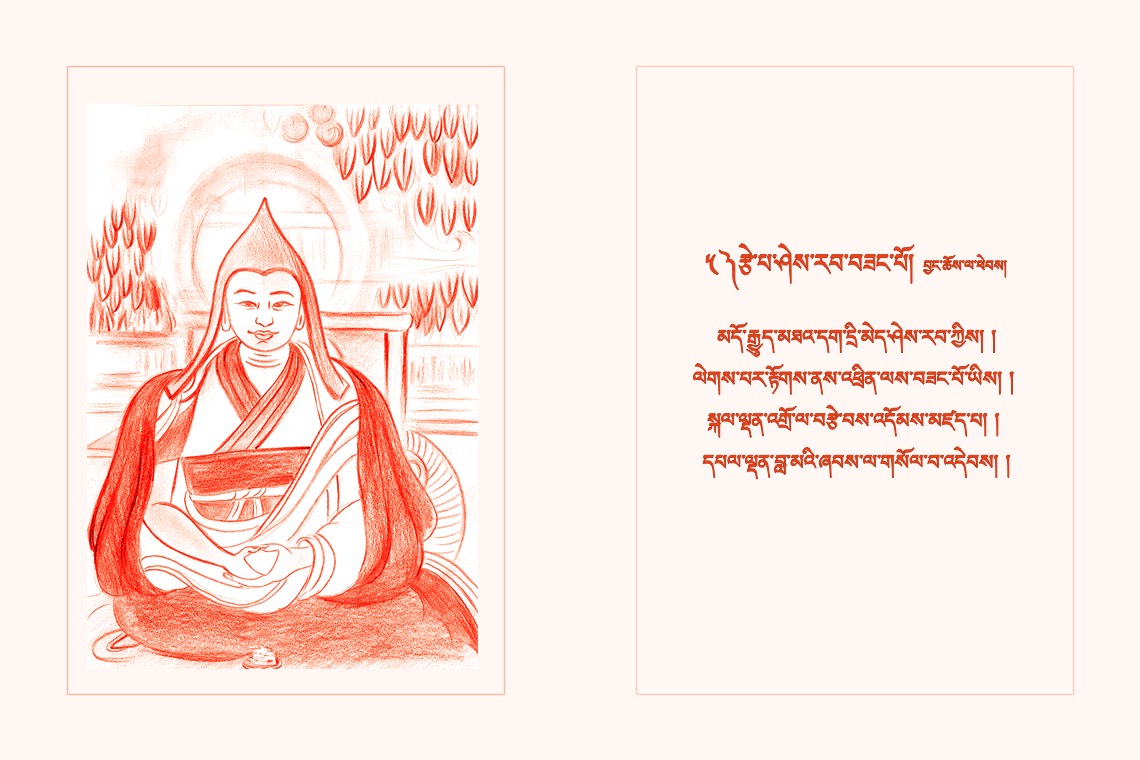 ༥ ༽རྩེ་པ་ཤེས་རབ་བཟང་པོ། བྱང་ཆོས་ལ་ཕེབས།
མདོ་རྒྱུད་མཐའ་དག་དྲི་མེད་ཤེས་རབ་ཀྱིས། །
ལེགས་པར་རྟོགས་ནས་འཕྲིན་ལས་བཟང་པོ་ཡིས། །
སྐལ་ལྡན་འགྲོ་ལ་བརྩེ་བས་འདོམས་མཛད་པ། །
དཔལ་ལྡན་བླ་མའི་ཞབས་ལ་གསོལ་བ་འདེབས། །